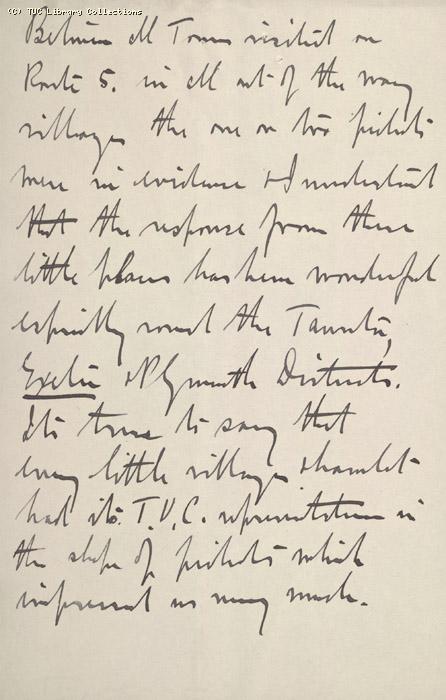 (C) TUC Library Collections
Between all Towns visited on
Route 5. in all out of the way
villages the one or two pickets
were in evidence & I understand
that the response from these
little places has been wonderful
especially round the Taunton,
Exeter & Plymouth Districts.
Its true to say that
every little village & hamlet
had its T.U.C. representation in
the shape of pickets which
impressed us very much.